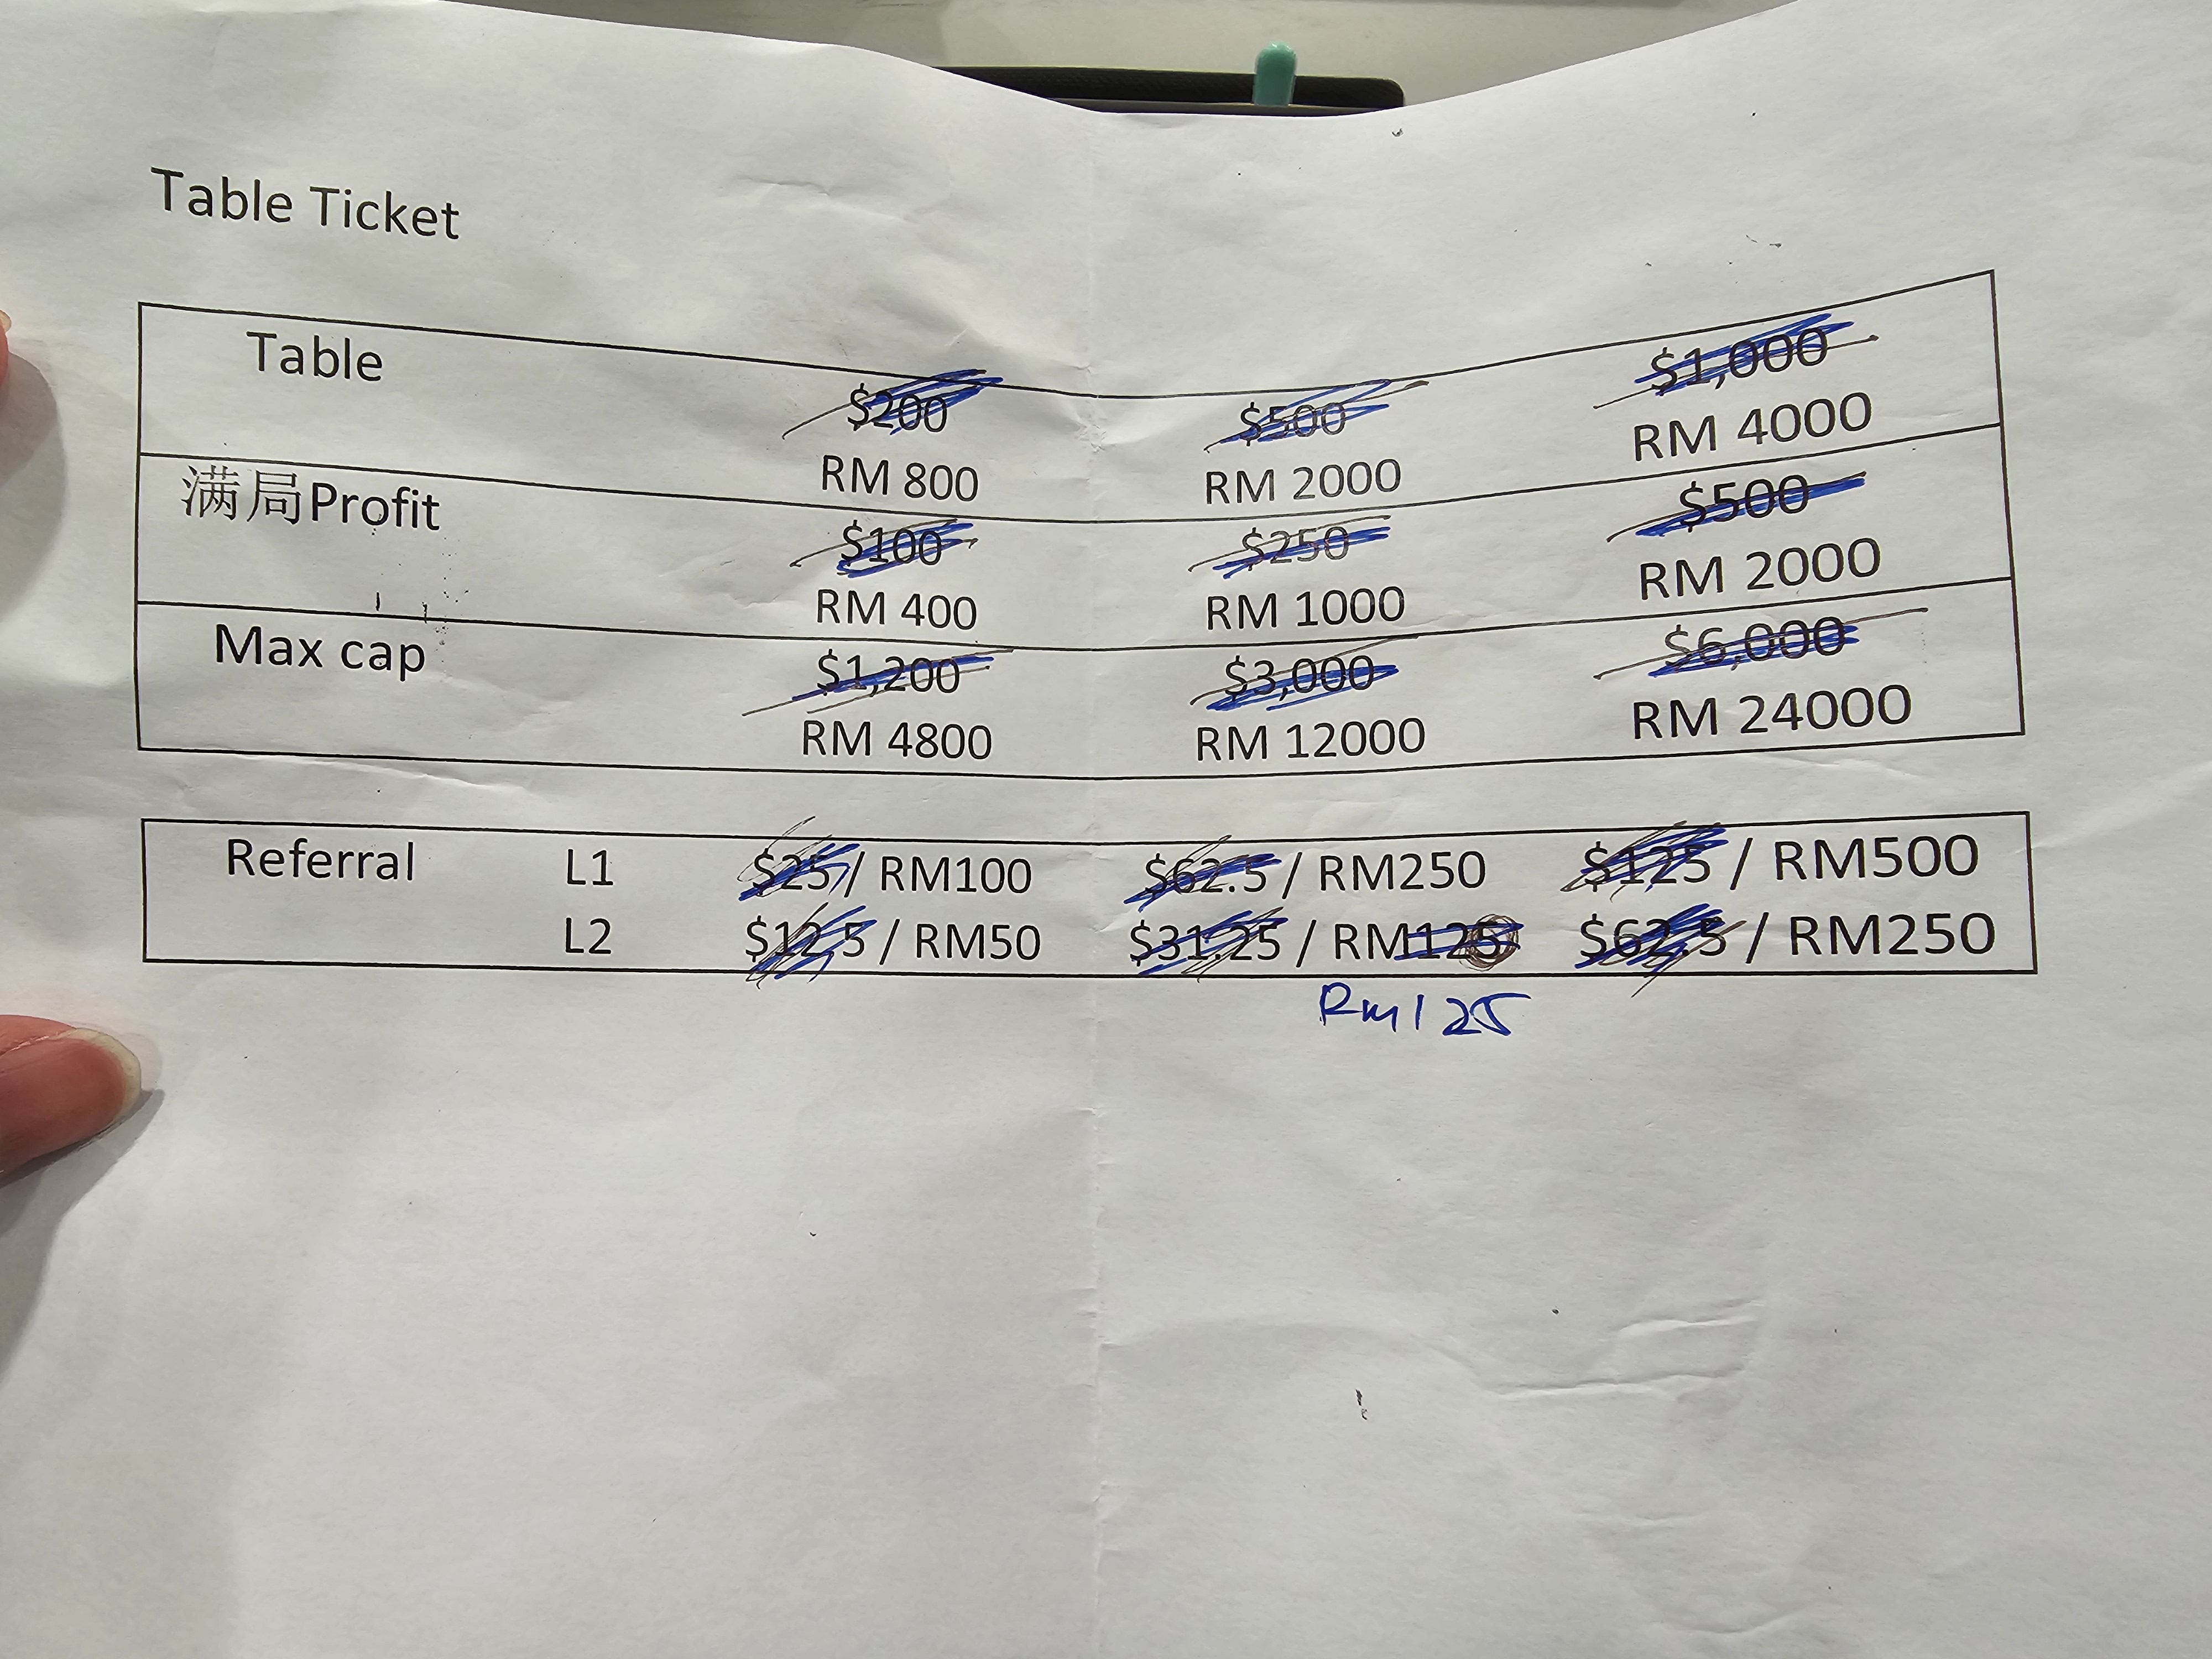 Table Ticket
Table
$200 $500 $1,000
RM 800 RM 2000 RM 4000
满局Profit
$100 $250 $500
RM 400 RM 1000 RM 2000
Max cap
$1,200 $3,000 $6,000
RM 4800 RM 12000 RM 24000
Referral L1 $25 / RM100 $62.5 / RM250 $125 / RM500
L2 $12.5 / RM50 $31.25 / RM125 $62.5 / RM250
Rm125